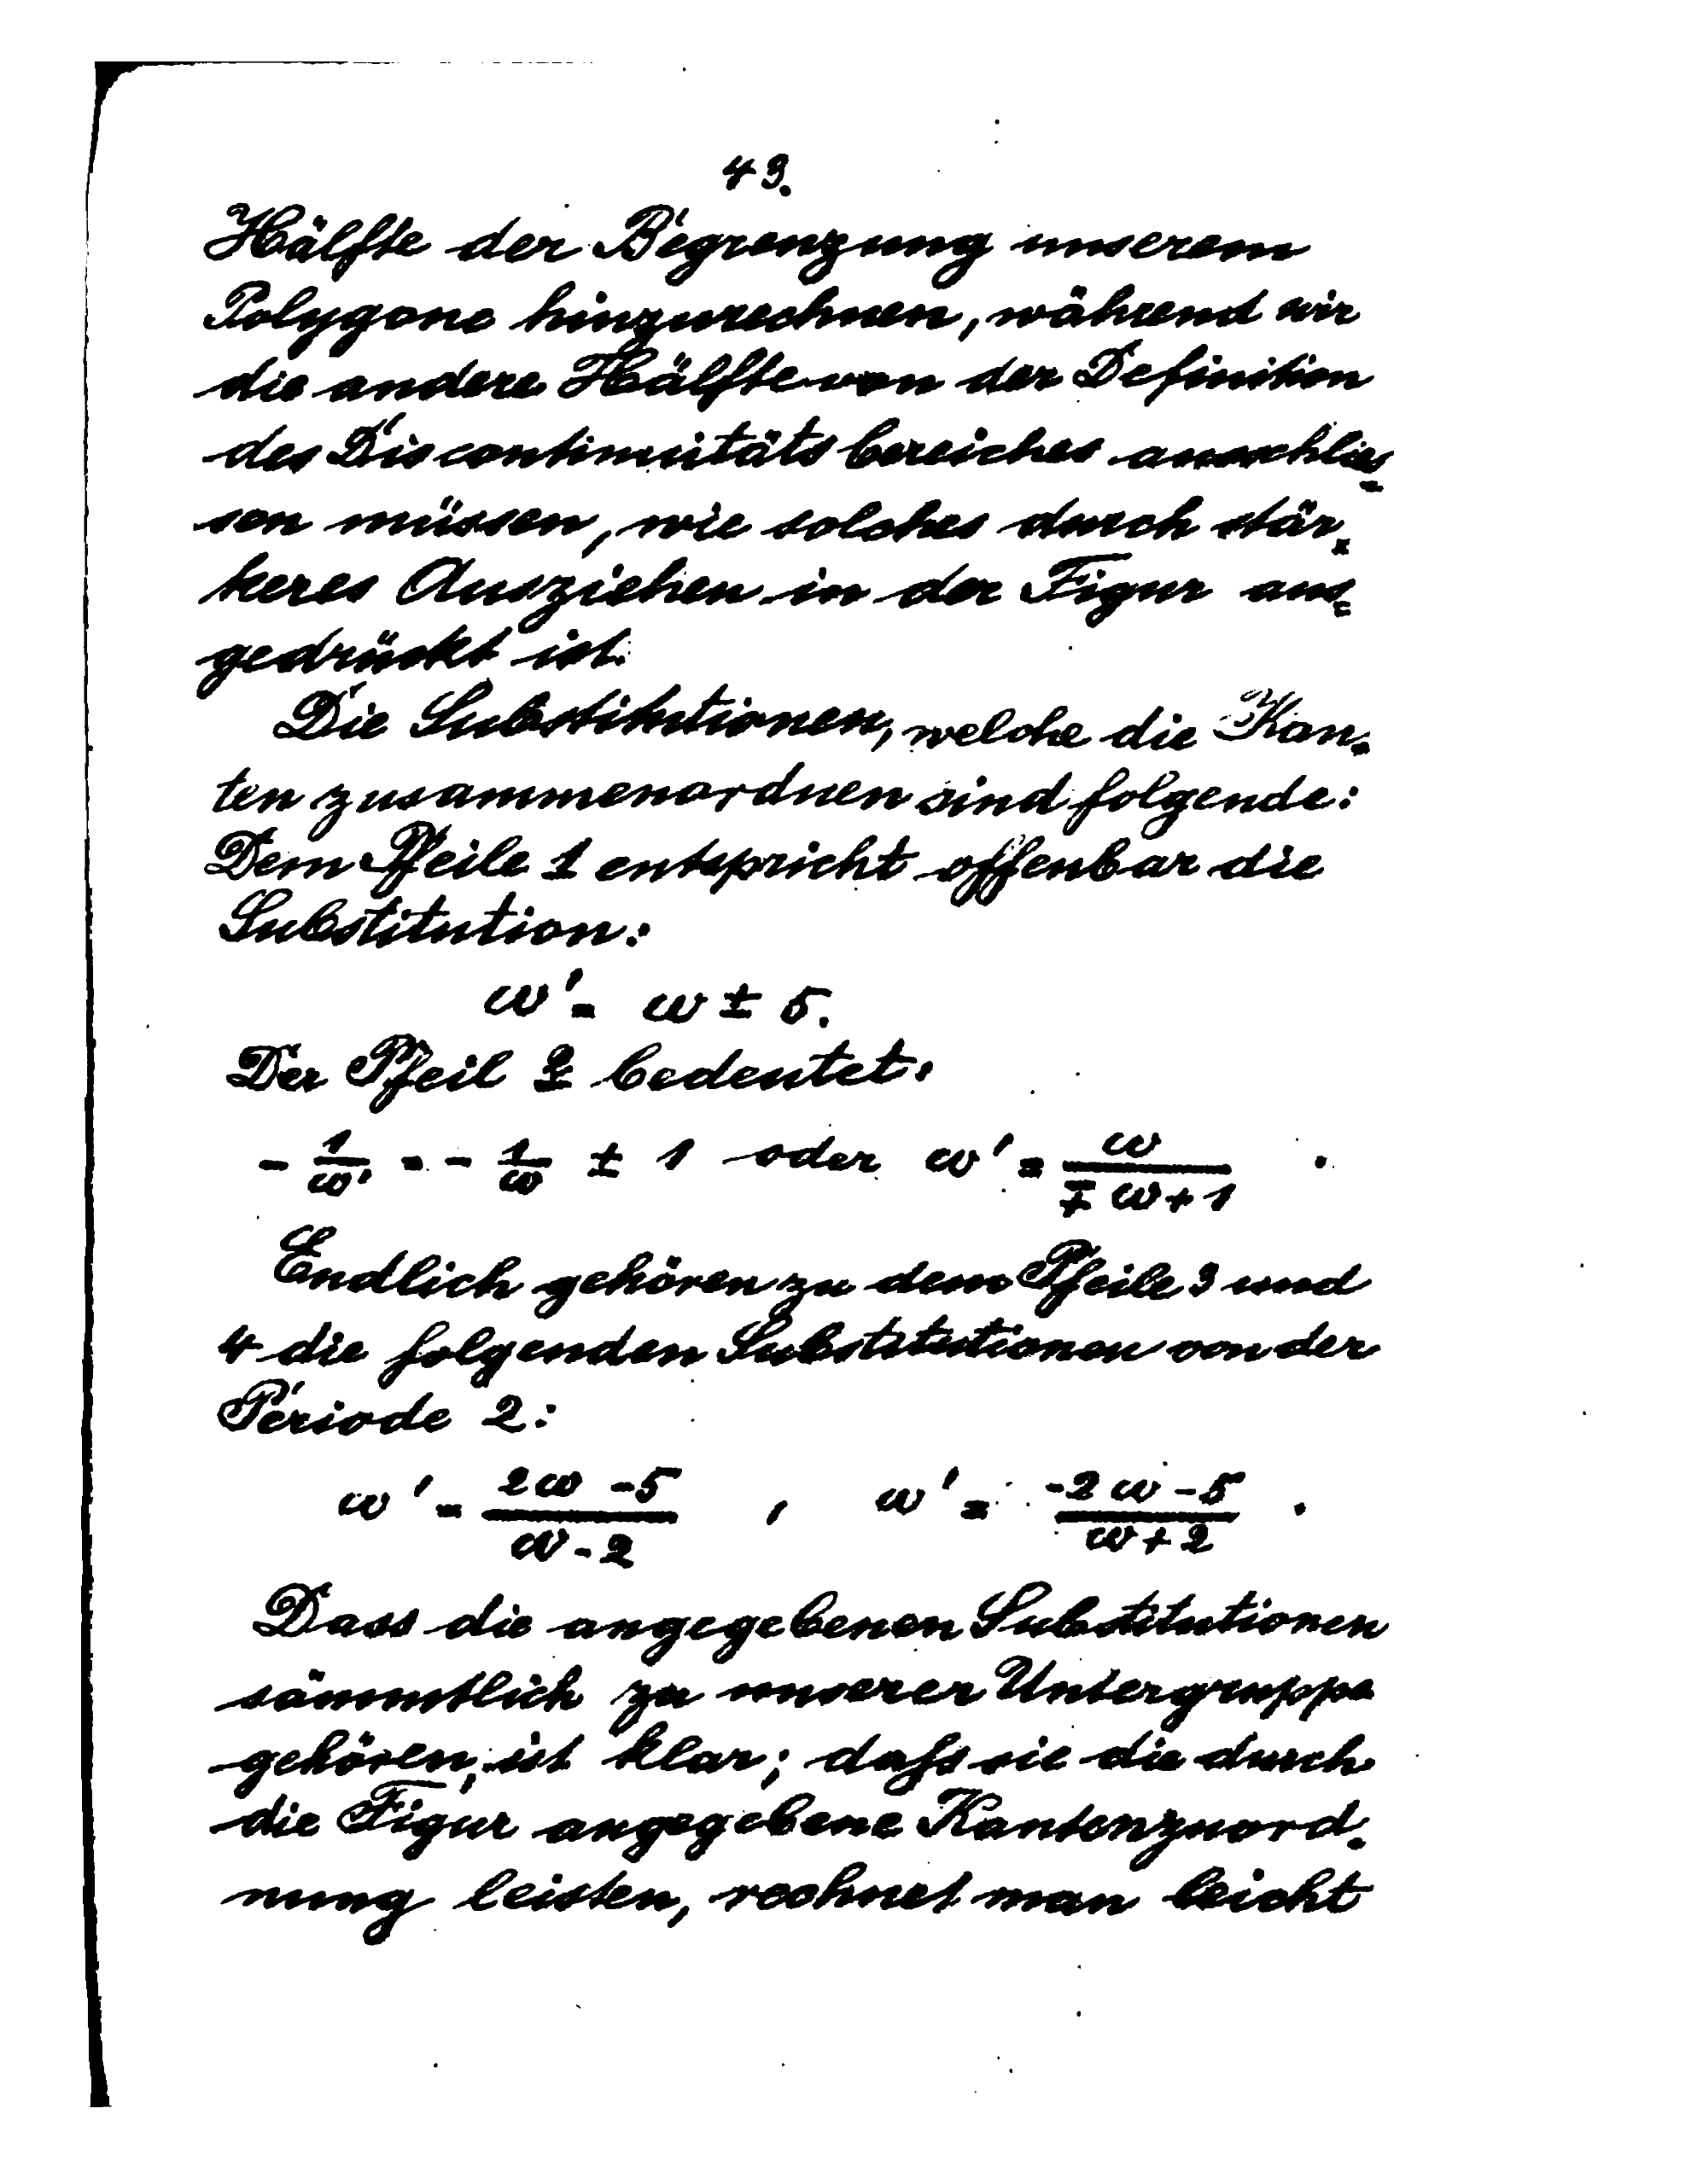 43.
Hälfte der Begrenzung unserem
Polygone hinzurechnen, während wir
die andere Hälfte von der Definition
des Discontinuitätsbereiches ausschlies=
sen müssen, wie solches durch stär=
keres Ausziehen in der Figur aus=
gedrückt ist.
Die Substitutionen, welche die Kan=
ten zusammenordnen sind folgende:
Dem Pfeile 1 entspricht offenbar die
Substitution:
ω' = ω ± 5.
Der Pfeil 2 bedeutet:
- 1/ω' = - 1/ω ± 1 oder ω' = ω/(∓ω+1).
Endlich gehören zu dem Pfeile 3 und
4 die folgenden Substitutionen von der
Periode 2:
ω' = (2ω - 5)/(ω - 2), ω' = (-2ω - 5)/(ω + 2).
Dass die angegebenen Substitutionen
sämmtlich zu unserer Untergruppe
gehören, ist klar; dafs sie die durch
die Figur angegebene Kantenzuord=
nung leisten, rechnet man leicht